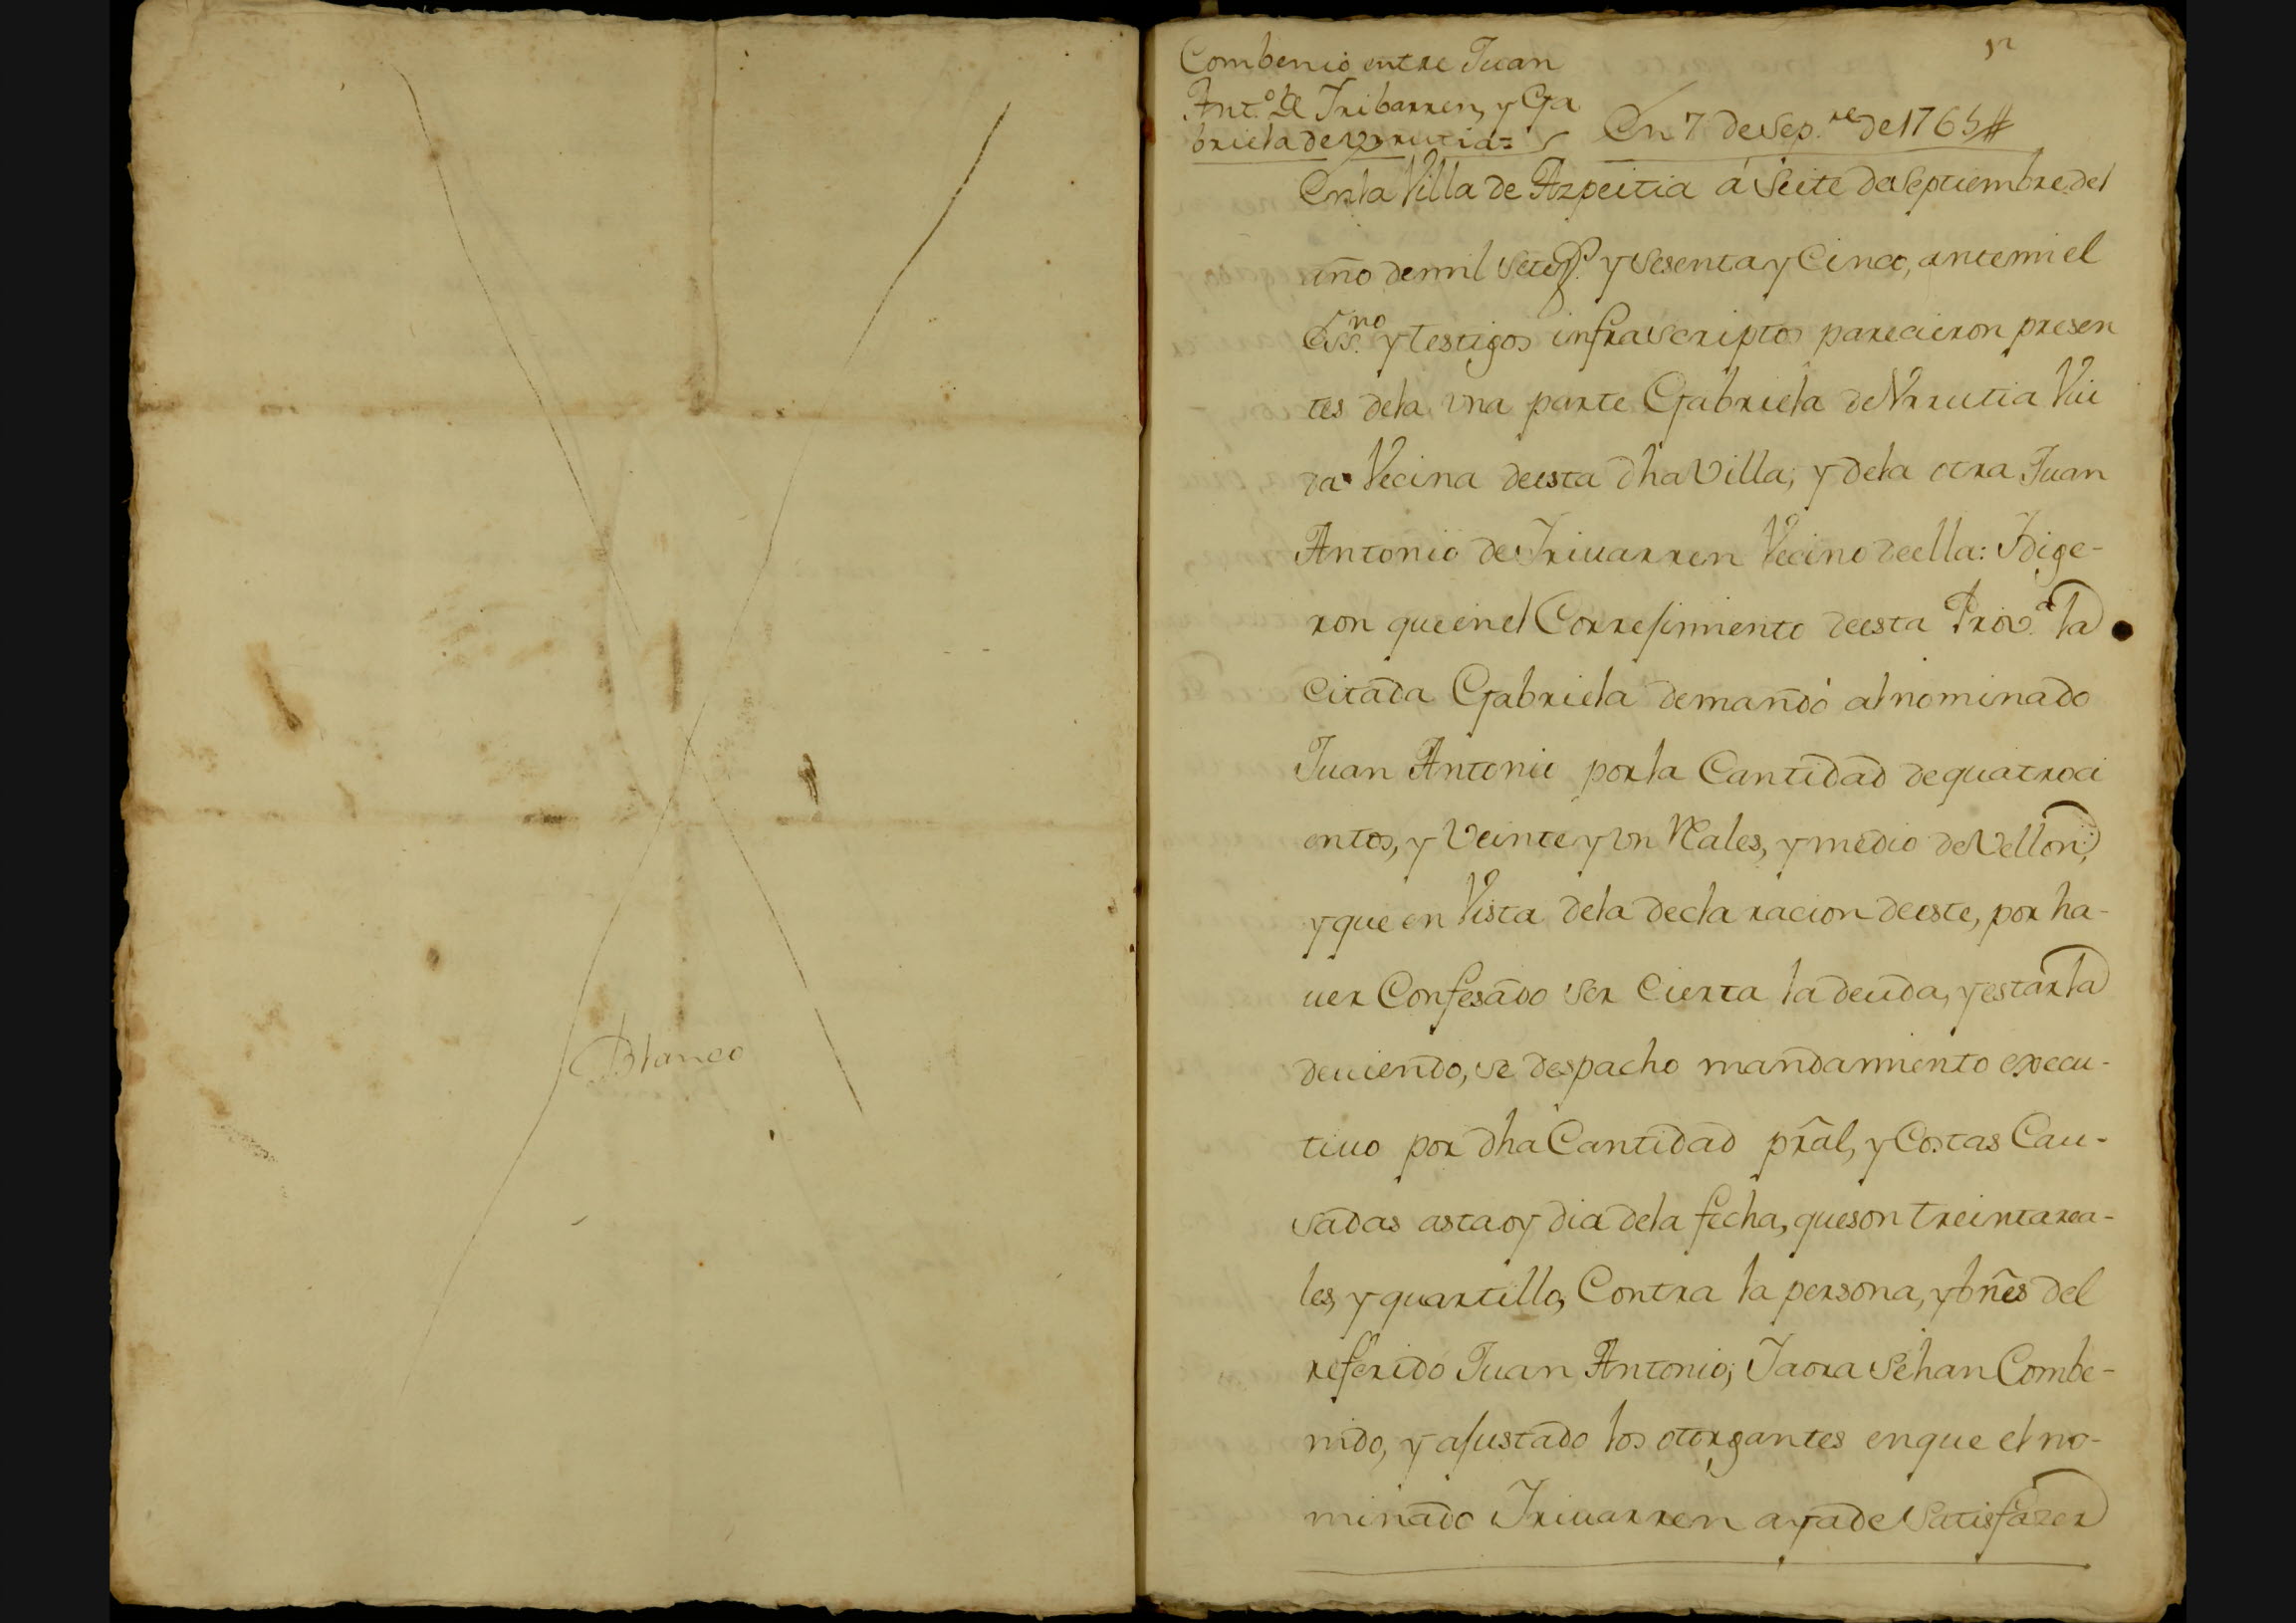 Blanco
Combenio entre Juan
Ant.º de Iribarren, y Ga
briela de Vrrutia=
En 7 de Sep.re de 1765
En la Villa de Azpeitia á Seite de Septiembre del
año de mil Setez.s y Sesenta y Cinco, ante mi el
Ess.no y testigos infrascriptos parecieron presen
tes dela vna parte Gabriela de Vrrutia Viu
da Vecina deesta dha Villa; y dela otra Juan
Antonio de Iriuarren Vecino deella: Y dige-
ron que en el Correjimiento deesta Prov.a la
citada Gabriela demandó al nominado
Juan Antonio por la Cantidad de quatroci
entos, y Veinte y vn Rales, y medio de Vellon;
y que en Vista dela declaracion deeste, por ha-
uer Confesado ser Cierta la deuda, y estarla
deuiendo, se despacho mandamiento execu-
tiuo por dha Cantidad pral, y Costas Cau-
sadas asta oy dia dela fecha, que son treinta rea-
les, y quartillo, Contra la persona, y bñes del
referido Juan Antonio; Y aora Se han Combe-
nido, y ajustado los otorgantes en que el no-
minado Iriuarren aya de Satisfazer